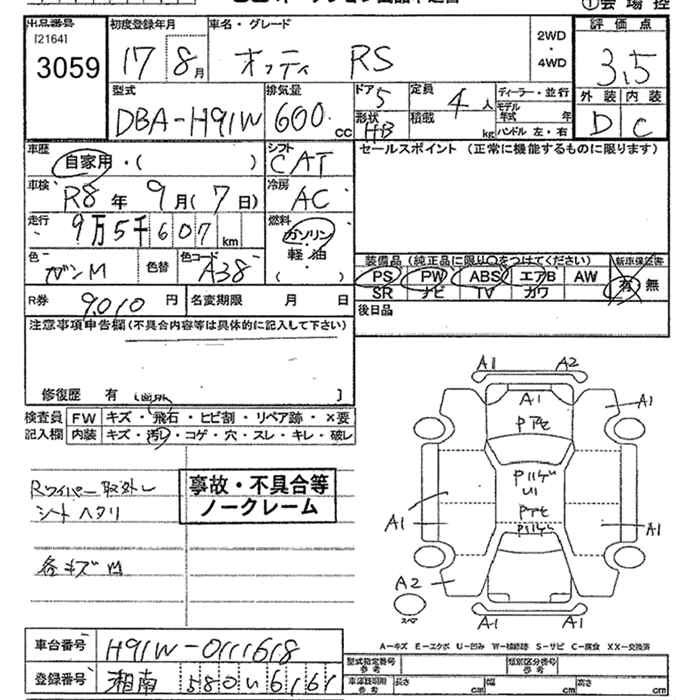 出品番号
[2164]
3059
初度登録年月
17 8月
車名・グレード
オッティ RS
2WD
・
4WD
①会場控
評価点
3.5
外装 内装
D C
型式
DBA-H91W
排気量
600 cc
ドア
5
形状
HB
定員
4人
積載
kg
ディーラー・並行
モデル
年式 年
ハンドル 左・右
車歴
自家用・( )
車検
R8年9月(7日)
走行
9万5千607km
色
ガンM
色替
色コード
A38
シフト
CAT
冷房
AC
燃料
ガソリン
軽油
( )
セールスポイント (正常に機能するものに限ります)
装備品 (純正品に限り○をつけてください)
PS PW ABS エアB AW
SR ナビ TV カワ
新車保証書
有 無
後日品
R券 9,010円
名変期限 月 日
注意事項申告欄(不具合内容等は具体的に記入して下さい)
修復歴 有
検査員
記入欄
FW キズ・飛石・ヒビ割・リペア跡・×要
内装 キズ・汚レ・コゲ・穴・スレ・キレ・破レ
Rワイパー取外し
シートヘタリ
各キズM
事故・不具合等
ノークレーム
A1 A2
A1
A1
A1
A1
A2
A1 A1
Pアセ
Pハゲ
U1
Pアセ
Pハゲ
A-キズ E-エクボ U-凹み W-補修跡 S-サビ C-腐食 XX-交換済
車台番号 H91W-0111618
登録番号 湘南 580 い 6161
型式指定番号
参考
類別区分番号
参考
車庫証明用
参考
長さ cm 幅 cm 高さ cm